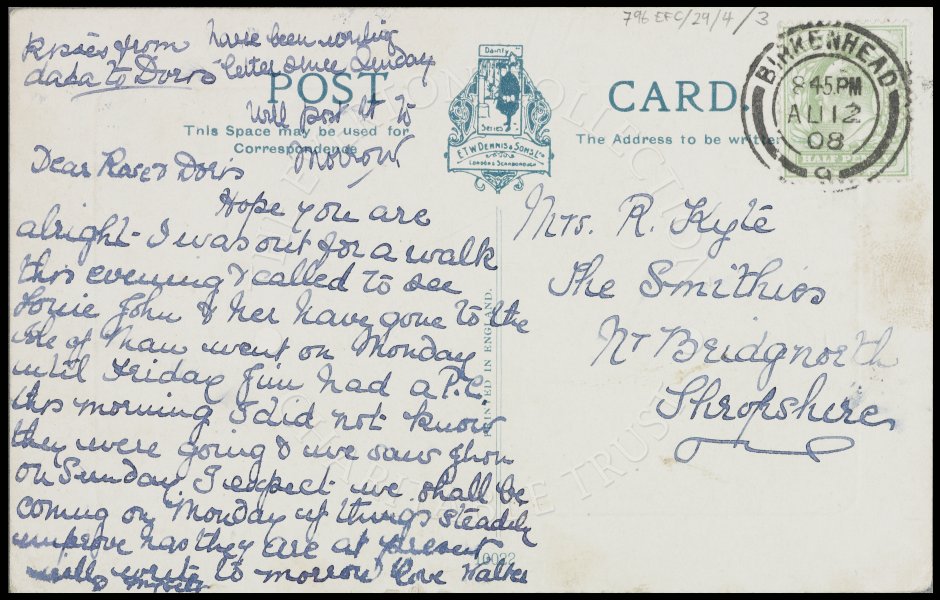 796 EFC/29/4/3
kisses from
dada to Doris
have been writing
letter since Sunday
will post it to
morrow
POST CARD.
This Space may be used for
Correspondence
The Address to be written
Dainty
Series
E.T.W. DENNIS & SONS LTD
LONDON & SCARBOROUGH
BIRKENHEAD
8 45 PM
AU 12
08
9
HALF PEN
Dear Rose & Doris
Hope you are
alright - I was out for a walk
this evening & called to see
Louie John & her have gone to the
Isle of Man went on Monday
until Friday Jim had a P.C.
this morning I did not know
they were going & we saw them
on Sunday I expect we shall be
coming on Monday if things steadily
improve has they are at present
will write to morrow love Walter
& myself
Mrs. R. Kyte
The Smithies
Nr Bridgnorth
Shropshire
PRINTED IN ENGLAND.